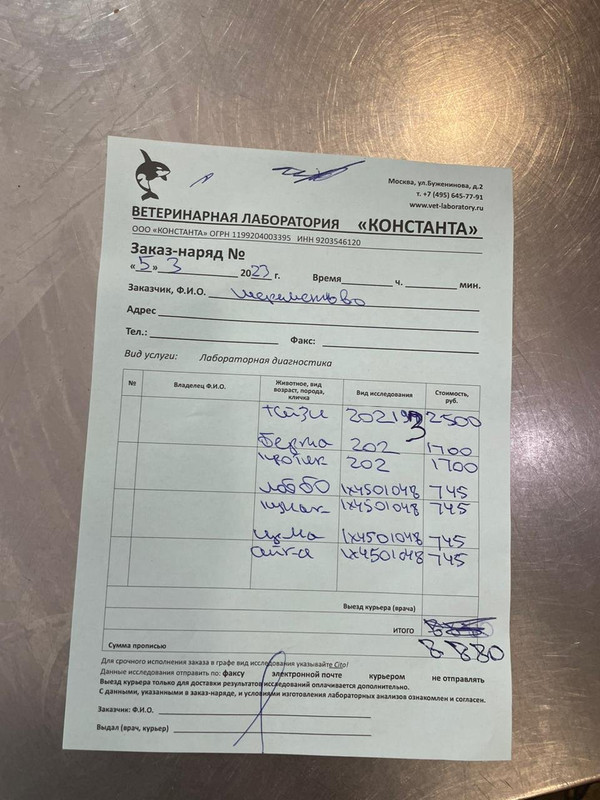 Москва, ул.Буженинова, д.2
т. +7 (495) 645-77-91
www.vet-laboratory.ru
ВЕТЕРИНАРНАЯ ЛАБОРАТОРИЯ «КОНСТАНТА»
ООО «КОНСТАНТА» ОГРН 1199204003395 ИНН 9203546120
Заказ-наряд №
«5» 3 2023 г. Время ч. мин.
Заказчик, Ф.И.О. шереметьево
Адрес
Тел.: Факс:
Вид услуги: Лабораторная диагностика
№ Владелец Ф.И.О. Животное, вид возраст, порода, кличка Вид исследования Стоимость, руб.
2500
Берта 202 1700
202 1700
1х4501048 745
1х4501048 745
1х4501048 745
1х4501048 745
Выезд курьера (врача)
ИТОГО
8880
Сумма прописью
Для срочного исполнения заказа в графе вид исследования указывайте Cito!
Данные исследования отправить по: факсу электронной почте курьером не отправлять
Выезд курьера только для доставки результатов исследований оплачивается дополнительно.
С данными, указанными в заказ-наряде, и условиями изготовления лабораторных анализов ознакомлен и согласен.
Заказчик: Ф.И.О.
Выдал (врач, курьер)